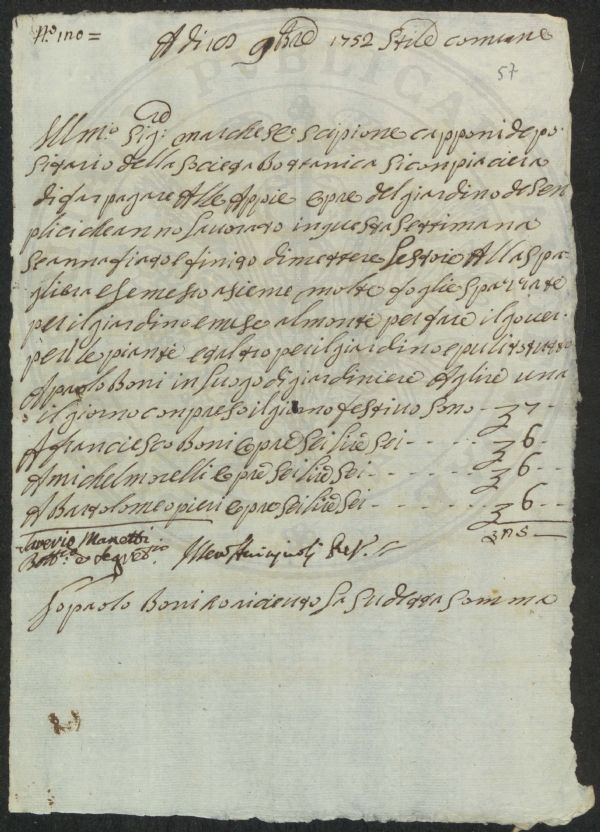 N.º 110 =
A di 18 9bre 1752 Stile comune
57
Illmo. Sigre. marchese scipione capponi depo-
sitario della società Bottanica si conpiacierà
di far pagare Alle Appie opre del giardino de sen
plici che anno lavorato in questa settimana
seannagiato e finito di mettere le stoie Alla spa
gliera e semesso asieme molte foglie sparzate
per il giardino e messe al monte per fare il
per le piante e galtro per il giardino e pulito tutto
A paolo Boni in luogo di giardiniere A lire una
il giorno conpreso il giorno festivo sono - 7 -
A franciesco Boni opre sei lire sei - - - - - 6 -
A michel morelli opre sei lire sei - - - - - 6 -
A Bartolomeo pieri opre sei lire sei - - - - - 6 -
Saverio Manetti
Bott.co e Segret.rio
Io paolo Boni o riceuto la sudetta somma
PUBLICA